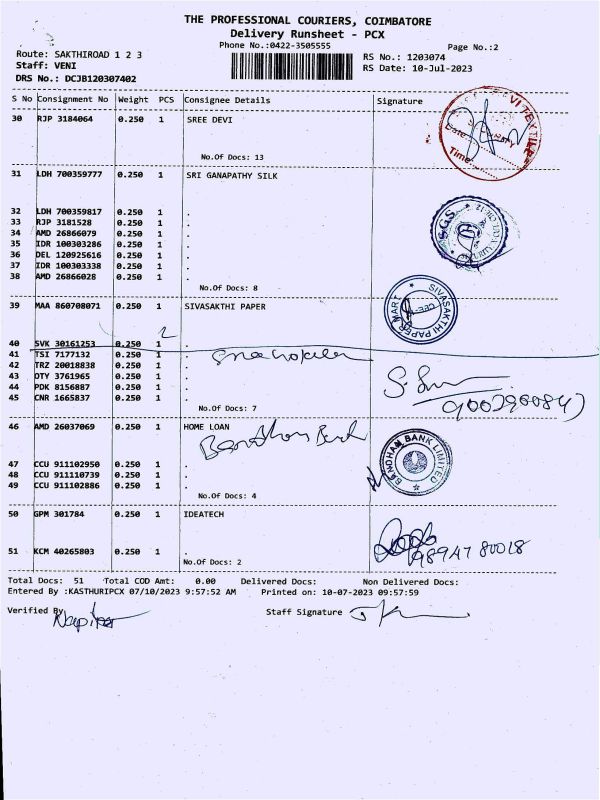 THE PROFESSIONAL COURIERS, COIMBATORE
Delivery Runsheet - PCX
Phone No.:0422-3505555
Page No.:2
Route: SAKTHIROAD 1 2 3
RS No.: 1203074
Staff: VENI
RS Date: 10-Jul-2023
DRS No.: DCJB120307402
S No Consignment No Weight PCS Consignee Details Signature
30 RJP 3184064 0.250 1 SREE DEVI
No.Of Docs: 13
31 LDH 700359777 0.250 1 SRI GANAPATHY SILK
32 LDH 700359817 0.250 1 .
33 RJP 3181528 0.250 1 .
34 AMD 26866079 0.250 1 .
35 IDR 100303286 0.250 1 .
36 DEL 120925616 0.250 1 .
37 IDR 100303338 0.250 1 .
38 AMD 26866028 0.250 1 .
No.Of Docs: 8
S.G.S.
39 MAA 860708071 0.250 1 SIVASAKTHI PAPER
SIVASAKTHI PAPER MART
2
40 SVK 30161253 0.250 1 .
41 TSI 7177132 0.250 1 .
42 TRZ 20018838 0.250 1 .
43 OTY 3761965 0.250 1 .
44 PDK 8156887 0.250 1 .
45 CNR 1665837 0.250 1 .
No.Of Docs: 7
46 AMD 26037069 0.250 1 HOME LOAN
Bandhan Bank
BANDHAM BANK LIMITED
47 CCU 911102950 0.250 1 .
48 CCU 911110739 0.250 1 .
49 CCU 911102886 0.250 1 .
No.Of Docs: 4
50 GPM 301784 0.250 1 IDEATECH
98947 80018
51 KCM 40265803 0.250 1 .
No.Of Docs: 2
Total Docs: 51 Total COD Amt: 0.00 Delivered Docs: Non Delivered Docs:
Entered By :KASTHURIPCX 07/10/2023 9:57:52 AM Printed on: 10-07-2023 09:57:59
Verified By
Staff Signature